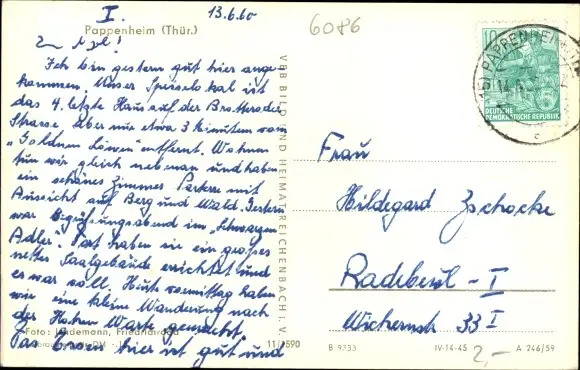 I. 13.6.60
6086
Pappenheim (Thür.)
Ich bin gestern gut hier ange-
kommen. Unser Speiselokal ist
das 4. letzte Haus auf der Brotteroder
Strasse, aber nur etwa 3 Minuten vom
"Goldnen Löwen" entfernt. Wohnen
tun wir gleich nebenan und haben
ein schönes Zimmer Parterre mit
Aussicht auf Berg und Wald. Gestern
war Begrüßungsabend im Schwarzen
Adler. Dort haben sie ein großes
nettes Saalgebäude errichtet und
es war voll. Heute vormittag haben
wir eine kleine Wanderung nach
der Hohen Warte gemacht.
Das Essen hier ist gut und
Foto: Lindemann, Friedrichroda
11/1590
VEB BILD UND HEIMAT REICHENBACH I. V.
10
DEUTSCHE
DEMOKRATISCHE REPUBLIK
PAPPENHEIM
Frau
Hildegard Zschocke
Radebeul - I
Wichernstr. 33 I
B 9233 IV-14-45 A 246/59
2,-